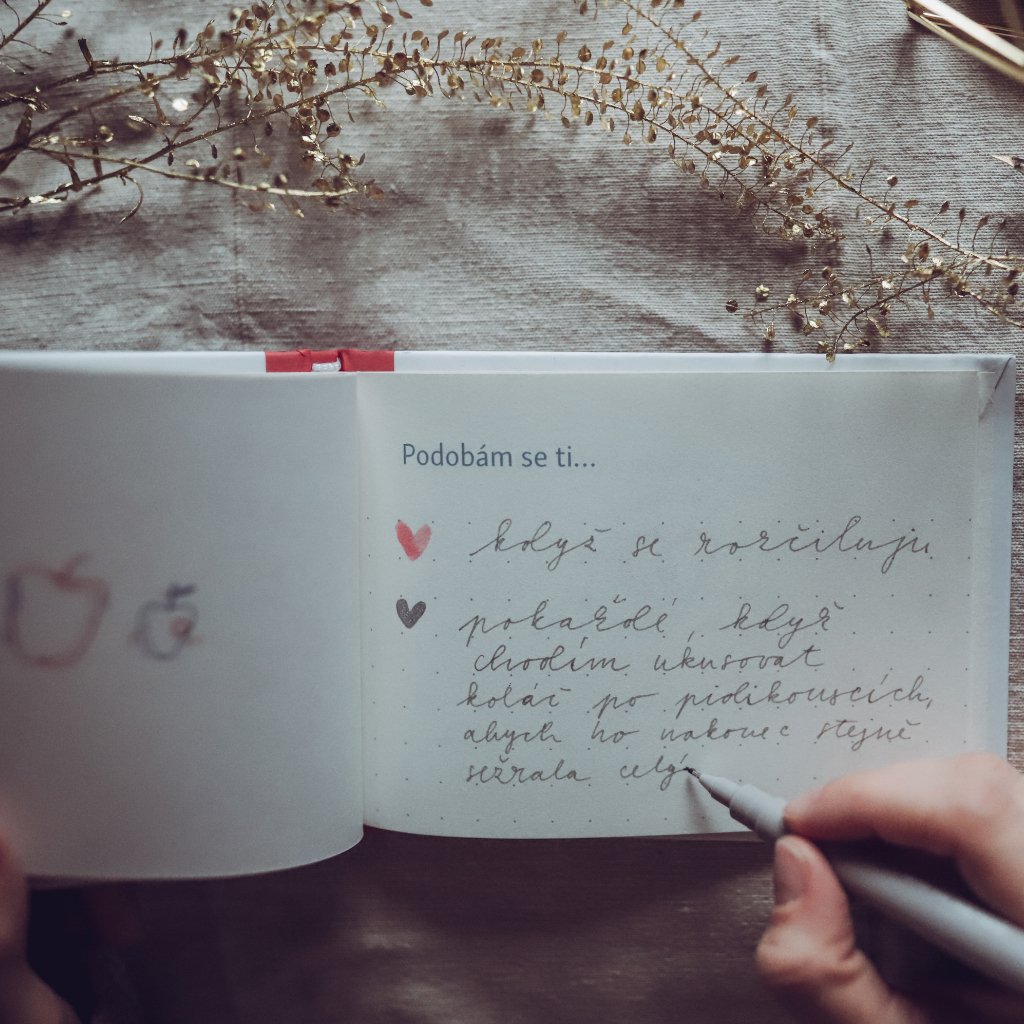 Podobám se ti...
když se rozčiluju
pokaždé, když
chodím ukusovat
koláč po pidikouscích,
abych ho nakonec stejně
sežrala celý